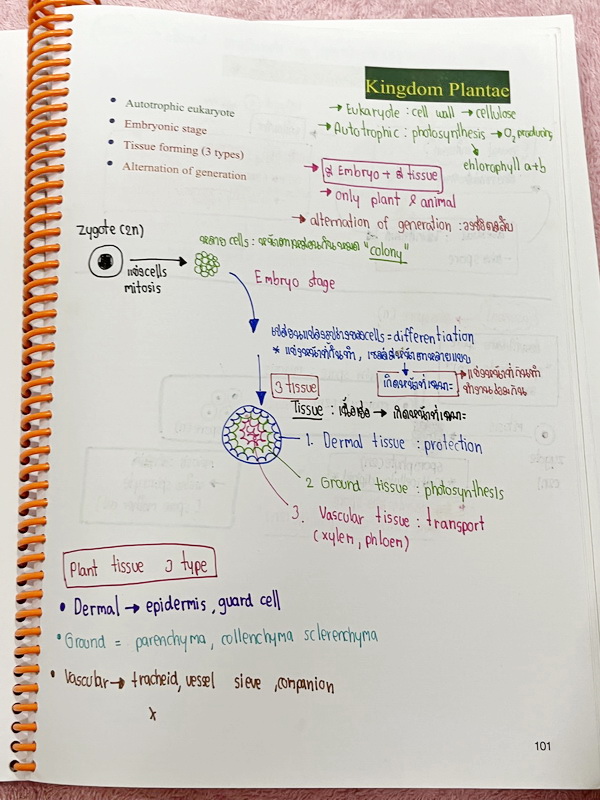 Kingdom Plantae
• Autotrophic eukaryote
• Embryonic stage
• Tissue forming (3 types)
• Alternation of generation
→ Eukaryote : cell wall → cellulose
→ Autotrophic : photosynthesis → O2 producing
chlorophyll a+b
มี Embryo + มี tissue
→ only plant & animal
→ alternation of generation : วงชีวิตสลับ
zygote (2n)
แบ่งcells
mitosis
หลาย cells : หน้าตาเหมือนกันหมด "colony"
Embryo stage
เปลี่ยนแปลงรูปร่างของcells = differentiation
* แบ่งหน้าที่กันทำ , เซลล์มีหน้าตาหลายแบบ
เกิดหน้าที่เฉพาะ
→ แบ่งหน้าที่กันทำ
ทำงานร่วมกัน
3 tissue
Tissue : เนื้อเยื่อ → เกิดหน้าที่เฉพาะ
1. Dermal tissue : protection
2 Ground tissue : photosynthesis
3. Vascular tissue : transport
(xylem, phloem)
Plant tissue 3 type
• Dermal → epidermis , guard cell
• Ground = parenchyma, collenchyma sclerenchyma
• Vascular → tracheid, vessel sieve , companion
x
101